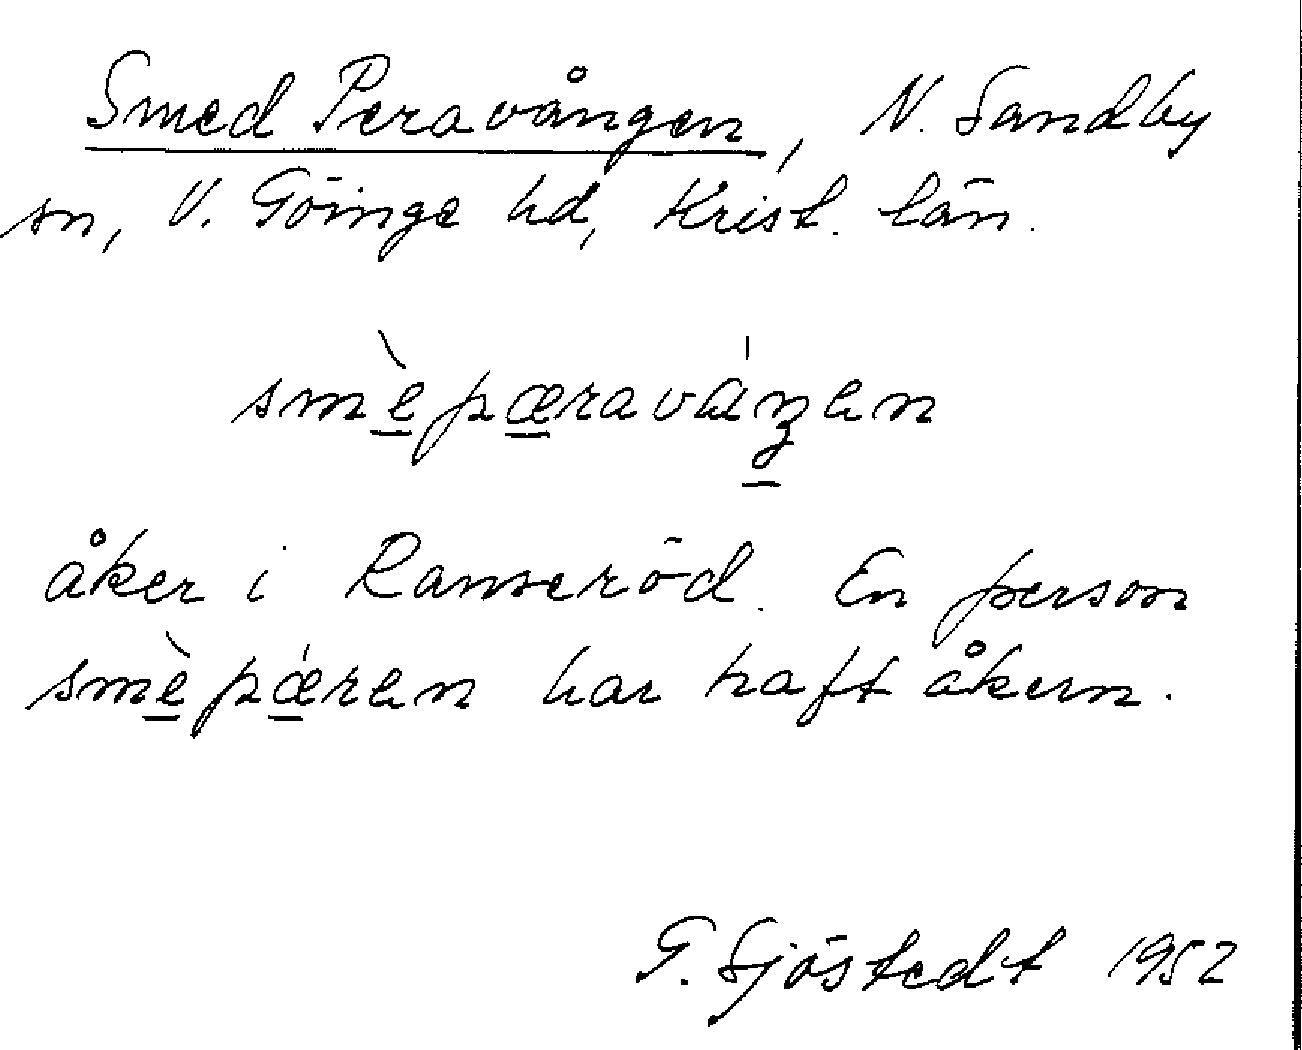 Smed Peravången, N. Sandby
sn, V. Göinge hd, Krist. län.
smè̠pæ̠raváŋ̠en
åker i Ranseröd. En person
smè̠pǽ̠ren har haft åkern.
G. Sjöstedt 1952